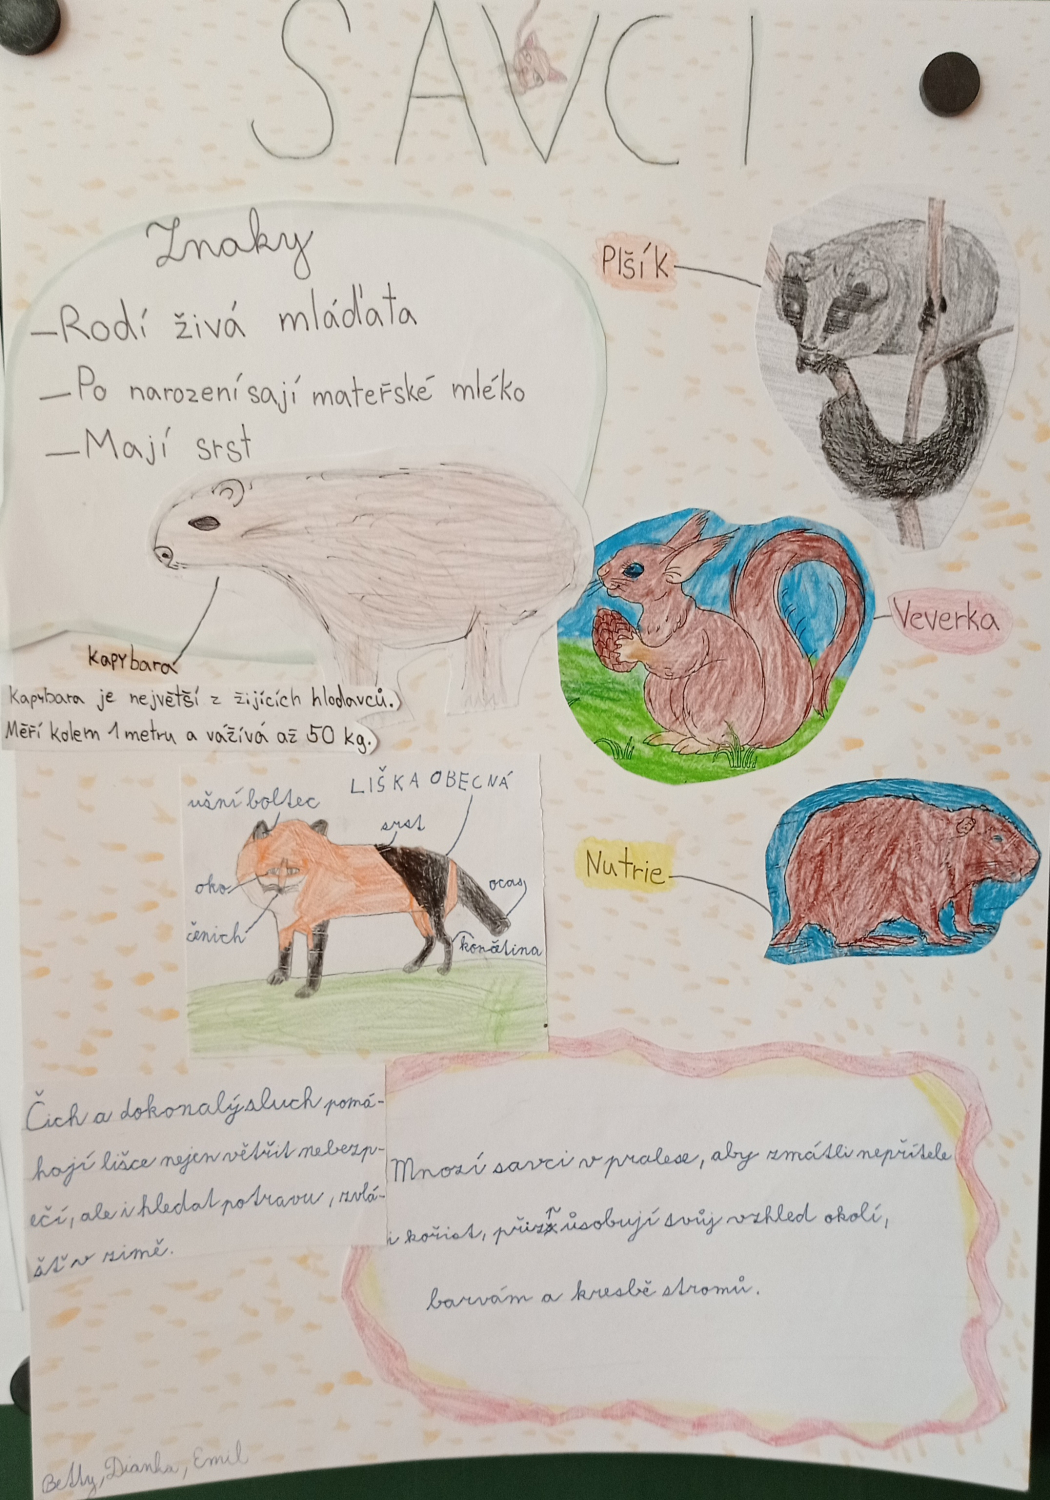 SAVCI
Znaky
–Rodí živá mláďata
–Po narození sají mateřské mléko
–Mají srst
Plšík
Veverka
kapybara
kapybara je největší z žijících hlodavců.
Měří kolem 1 metru a vážívá až 50 kg.
LIŠKA OBECNÁ
ušní boltec
srst
oko
ocas
čenich
končtina
Nutrie
Čich a dokonalý sluch pomá-
hají lišce nejen větřit nebezp-
ečí, ale i hledat potravu, zvlá-
šť v zimě.
Mnozí savci v pralese, aby zmátli nepřítele
i kořist, přizpůsobují svůj vzhled okolí,
barvám a kresbě stromů.
Betty, Dianka, Emil